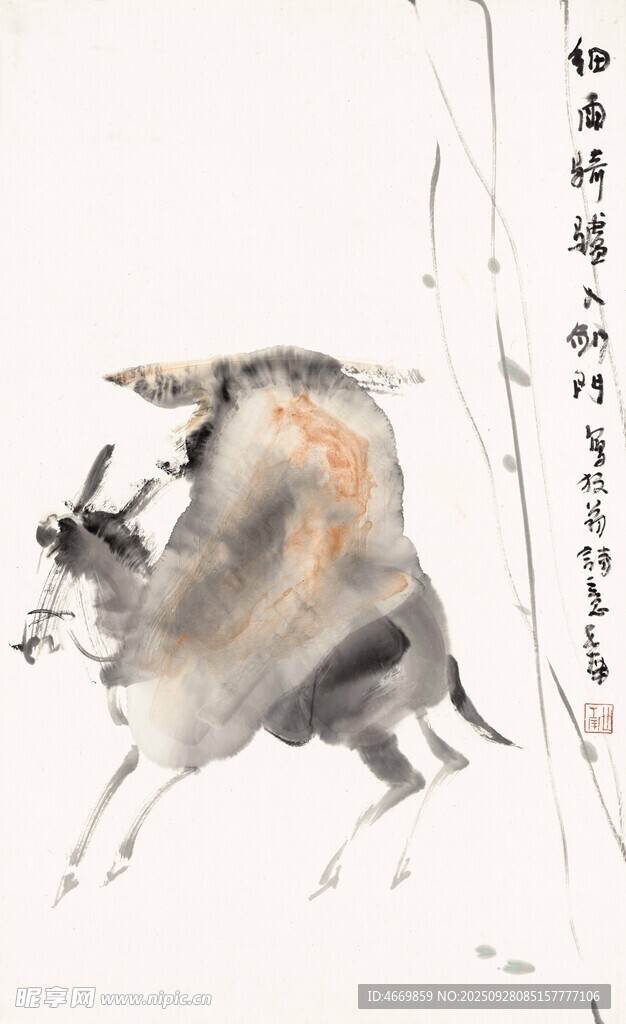 細雨騎驢入劍門
寫放翁詩意
昵享网 www.nipic.cn
ID:4669859 NO:20250928085157777106